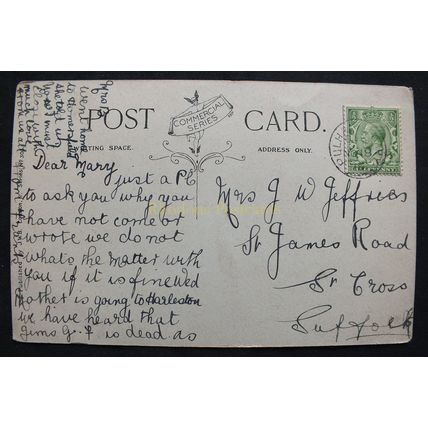 POST CARD.
COMMERCIAL
SERIES
ADDRESS ONLY.
Dear Mary
just a PC
to ask you why you
have not come or
wrote we do not
whats the matter with
you if it is fine Wed
Mother is going to Harleston
we have heard that
Jims G. F is dead. as
Mrs B
went home
to
Mrs J W Jeffries
St James Road
St Cross
Suffolk
PULHA